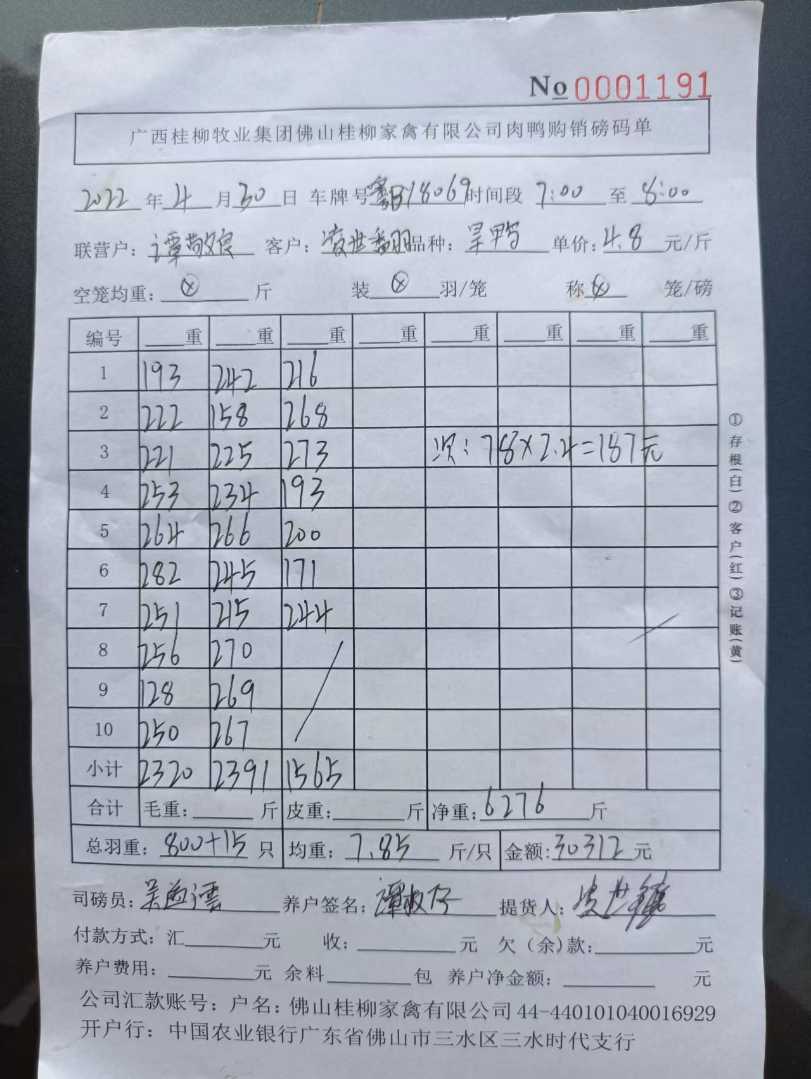 No 0001191
广西桂柳牧业集团佛山桂柳家禽有限公司肉鸭购销磅码单
2022 年 4 月 30 日 车牌号 18069 时间段 7:00 至 8:00
联营户: 谭 客户: 凌世 品种: 旱鸭 单价: 4.8 元/斤
空笼均重: ⊗ 斤 装 ⊗ 羽/笼 称 ⊗ 笼/磅
编号 重 重 重 重 重 重 重 重
1 193 242 216
2 222 158 268
3 221 225 273 次: 78×2.4=187元
4 253 234 193
5 264 266 200
6 282 245 171
7 251 215 244
8 256 270
9 128 269
10 250 267
小计 2320 2391 1565
合计 毛重: 斤 皮重: 斤 净重: 6276 斤
总羽重: 800+15 只 均重: 7.85 斤/只 金额: 30312 元
司磅员: 吴 养户签名: 谭 提货人: 凌世
付款方式: 汇 元 收: 元 欠(余)款: 元
养户费用: 元 余料 包 养户净金额: 元
公司汇款账号: 户名: 佛山桂柳家禽有限公司 44-440101040016929
开户行: 中国农业银行广东省佛山市三水区三水时代支行
①存根(白)②客户(红)③记账(黄)